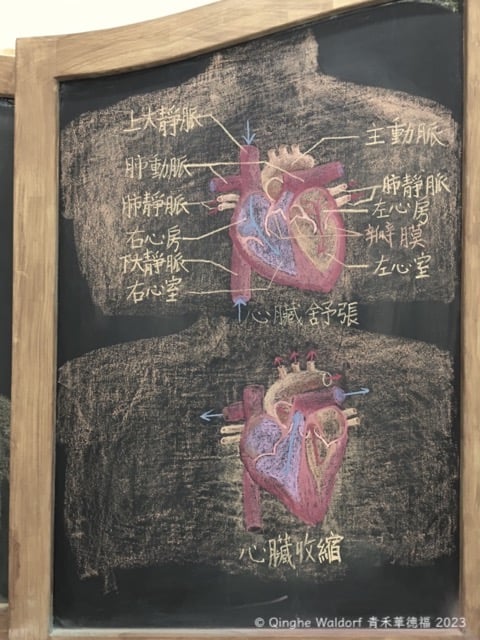 上大靜脈
肺動脈
肺靜脈
右心房
下大靜脈
右心室
主動脈
肺靜脈
左心房
瓣膜
左心室
心臟舒張
心臟收縮
© Qinghe Waldorf 青禾華德福 2023